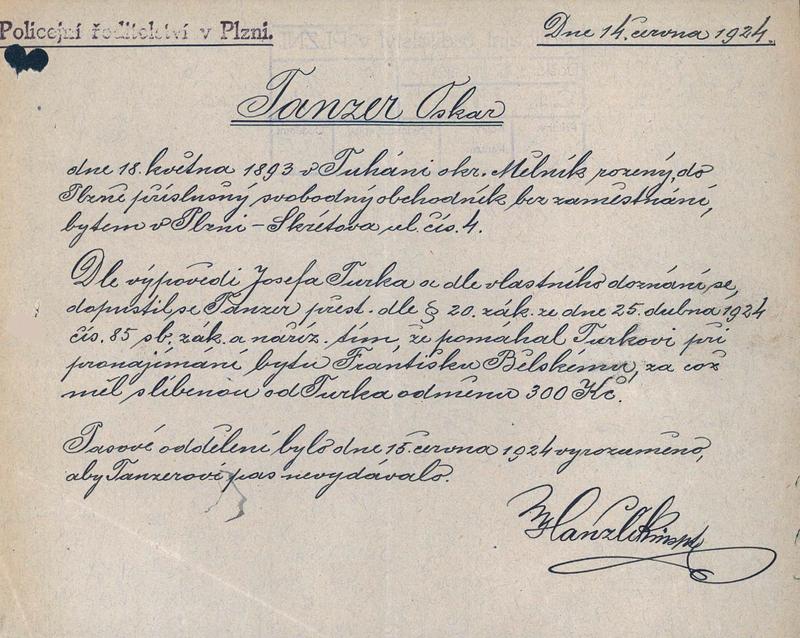 Policejní ředitelství v Plzni.
Dne 14. června 1924.
Tanzer Oskar
dne 18. května 1893 v Tuháni okr. Mělník rozený, do
Plzně příslušný svobodný obchodník bez zaměstnání,
bytem v Plzni – Skrétova ul. čís. 4.
Dle výpovědi Josefa Turka a dle vlastního doznání se,
dopustil se Tanzer přest. dle § 20. zák. ze dne 25. dubna 1924
čís. 85 sb. zák. a naříz. tím, že pomáhal Turkovi při
pronajímání bytu Františku Bělskému, za což
měl slíbenou od Turka odměnu 300 Kč.
Pasové oddělení bylo dne 15. června 1924 vyrozuměno,
aby Tanzerovi pas nevydávalo.